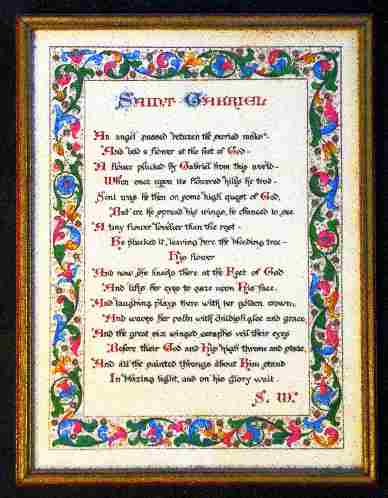 SAINT GABRIEL
An angel passed between the serried ranks-
And laid a flower at the feet of God-
A flower plucked by Gabriel from this world-
When once upon its flowered hills he trod-
Sent was he then on some high quest of God,
And ere he spread his wings, he chanced to see
A tiny flower lovelier than the rest-
He plucked it, leaving here the bleeding tree-
His flower
And now she kneels there at the Feet of God
And lifts her eyes to gaze upon His face,
And laughing plays there with her golden crown,
And waves her palm with childish glee and grace,
And the great six winged seraphs veil their eyes
Before their God and His high throne and state,
And all the painted throngs about Him stand
In blazing light, and on his glory wait.
S. W.